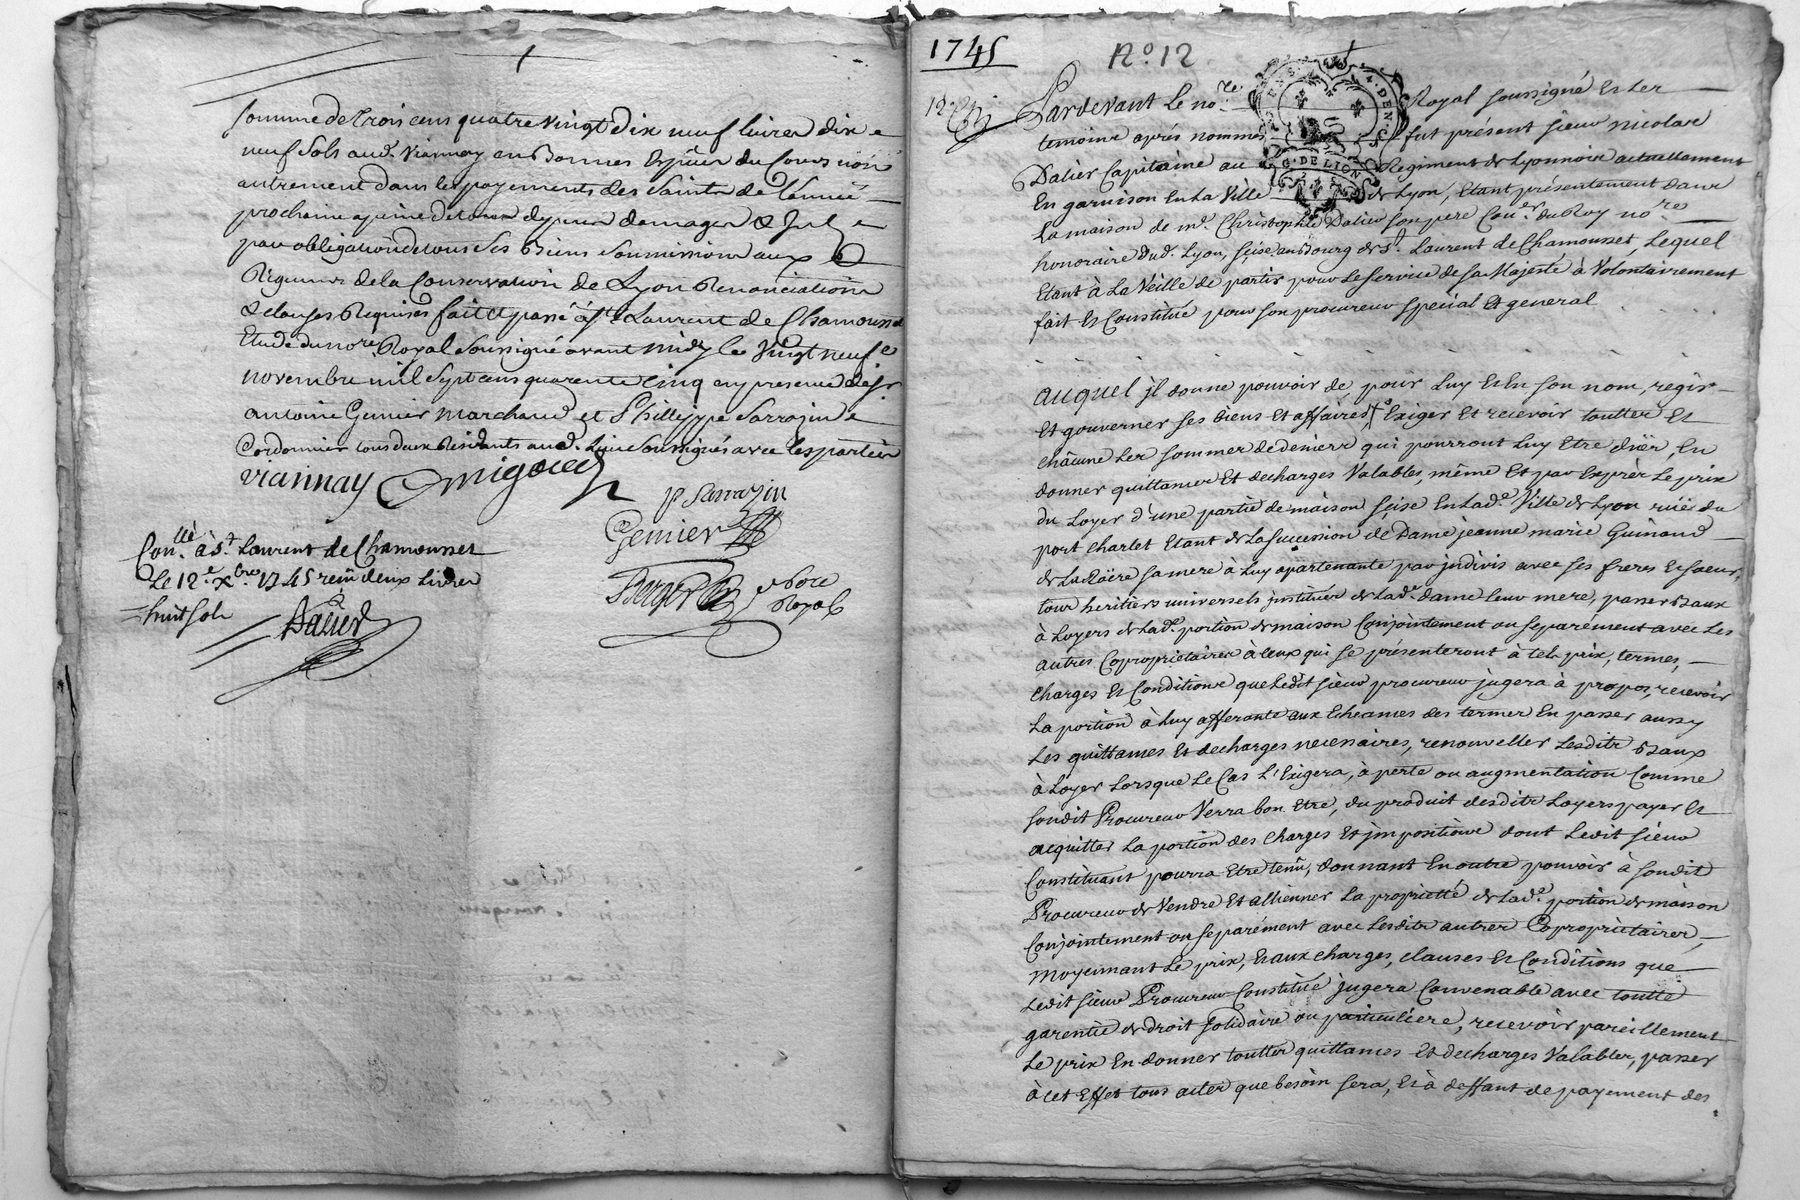 somme de Trois cens quatre vingt dix neuf livres dix
neuf sols aud. Viannay en Bonnes Espèces du Cours non
autrement dans les payements des saints de l'année
prochaine a peine de tous depens domages &
par obligation de tous ses Biens soumissions aux
Rigueurs de la Conservation de Lyon Renonciations
& clauses Requises fait et passé à st Laurent de Chamousset
Etude du nore Royal soussigné avant midy le vingt neuf
novembre mil sept cens quarente cinq en presence de sr
antoine Genier marchand et Philleppe Sarrazin
Cordonnier tous deux Residants aud. Lieu soussignés avec les parties
viannay
p Sarrazin
Genier
Berger nore
Royal
Conllé à St. Laurent de Chamousset
Le 12e Xbre 1745 reçu deux Livres
huit sols
Dalier
1745
No. 12
12
G. DE LION
Pardevant le nore. Royal soussigné Et Les
temoins après nommés fut présent sieur nicolas
Dalier Capitaine au Regiment de Lyonnois actuellement
En garnison En La Ville de Lyon, Etant présentement dans
La maison de mr. Christophle Dalier son pere Coner du Roy nore
honoraire dud. Lyon, seise au Bourg de St. Laurent de Chamousset, Lequel
Etant à La Veille de partir pour Le service de sa Majesté à Volontairement
fait Et Constitué pour son procureur special Et general
auquel jl donne pouvoir de pour Luy Et En son nom, regir
Et gouverner ses biens Et affaires Exiger Et recevoir touttes Et
châcune Les sommes de deniers qui pourront Luy Etre dües, En
donner quittances Et decharges Valables, même Et par Exprès Le prix
du Loyer d'une partie de maison seise En Lade. Ville de Lyon rüe du
port charlet Etant de La succession de Dame jeanne marie Guinand
sa mere à Luy apartenante par jndivis avec ses freres Et soeur,
tous heritiers universels jnstitués de Lad. dame Leur mere, passer Baux
à Loyers de Lade. portion de maison Conjointement ou separément avec Les
autres Coproprietaires à ceux qui se présenteront à tels prix, termes,
charges Et Conditions que Ledit sieur procureur jugera à propos, recevoir
La portion à Luy afferante aux Echeances des termes En passer aussy
Les quittances Et decharges necessaires, renouveller Lesdits Baux
à Loyer Lorsque Le Cas L'Exigera, à perte ou augmentation Comme
sondit Procureur Verra bon Etre, du produit desdits Loyers payer Et
acquitter La portion des charges Et jmpositions dont Ledit sieur
Constituant pourra Etre tenu, donnant En outre pouvoir à sondit
Procureur de Vendre Et allienner La proprietté de Lade. portion de maison
Conjointement ou separément avec Lesdits autres Coproprietaires,
moyennant Le prix, Et aux charges, clauses Et Conditions que
Ledit sieur Procureur Constitué jugera Convenable avec toutte
garentie de droit solidaire ou particuliere, recevoir pareillement
Le prix En donner touttes quittances Et decharges Valables, passer
à cet Effet tous actes que besoin sera, Et à deffaut de payement des